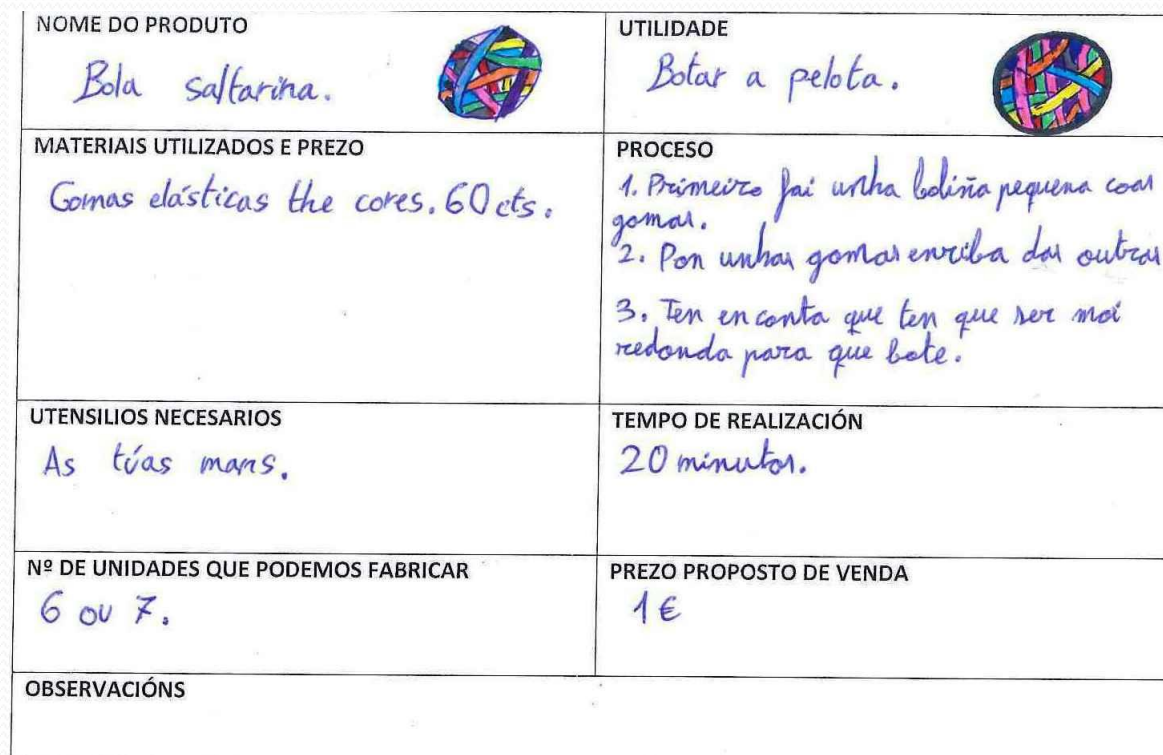 NOME DO PRODUTO
Bola saltarina.
UTILIDADE
Botar a pelota.
MATERIAIS UTILIZADOS E PREZO
Gomas elásticas the cores. 60 cts.
PROCESO
1. Primeiro fai unha boliña pequena coas
gomas.
2. Pon unhas gomas enriba das outras
3. Ten en conta que ten que ser moi
redonda para que bote.
UTENSILIOS NECESARIOS
As túas mans.
TEMPO DE REALIZACIÓN
20 minutos.
Nº DE UNIDADES QUE PODEMOS FABRICAR
6 ou 7.
PREZO PROPOSTO DE VENDA
1 €
OBSERVACIÓNS